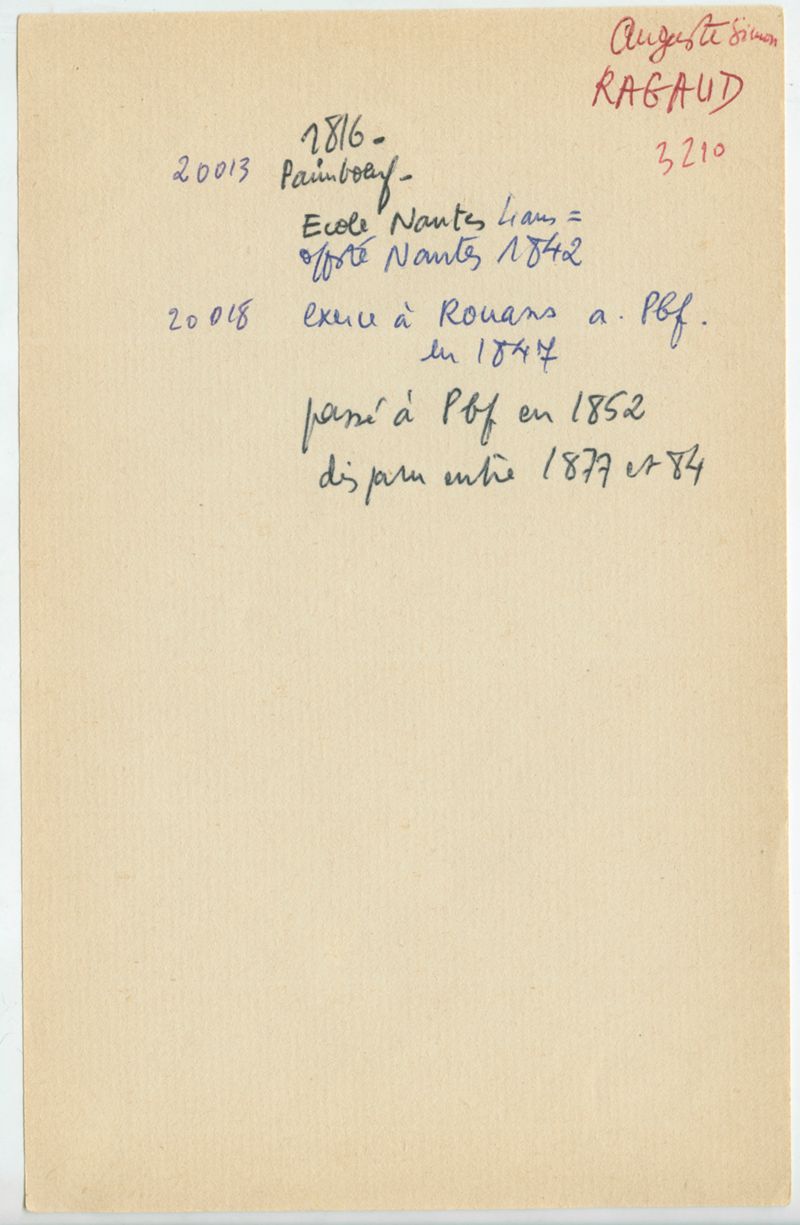 Auguste Simon
RAGAUD
3210
1816 -
20013 Paimboeuf -
Ecole Nantes 4 ans =
offsté Nantes 1842
20018 exerce à Rouans a. Pbf.
en 1847
passé à Pbf en 1852
disparu entre 1877 et 84